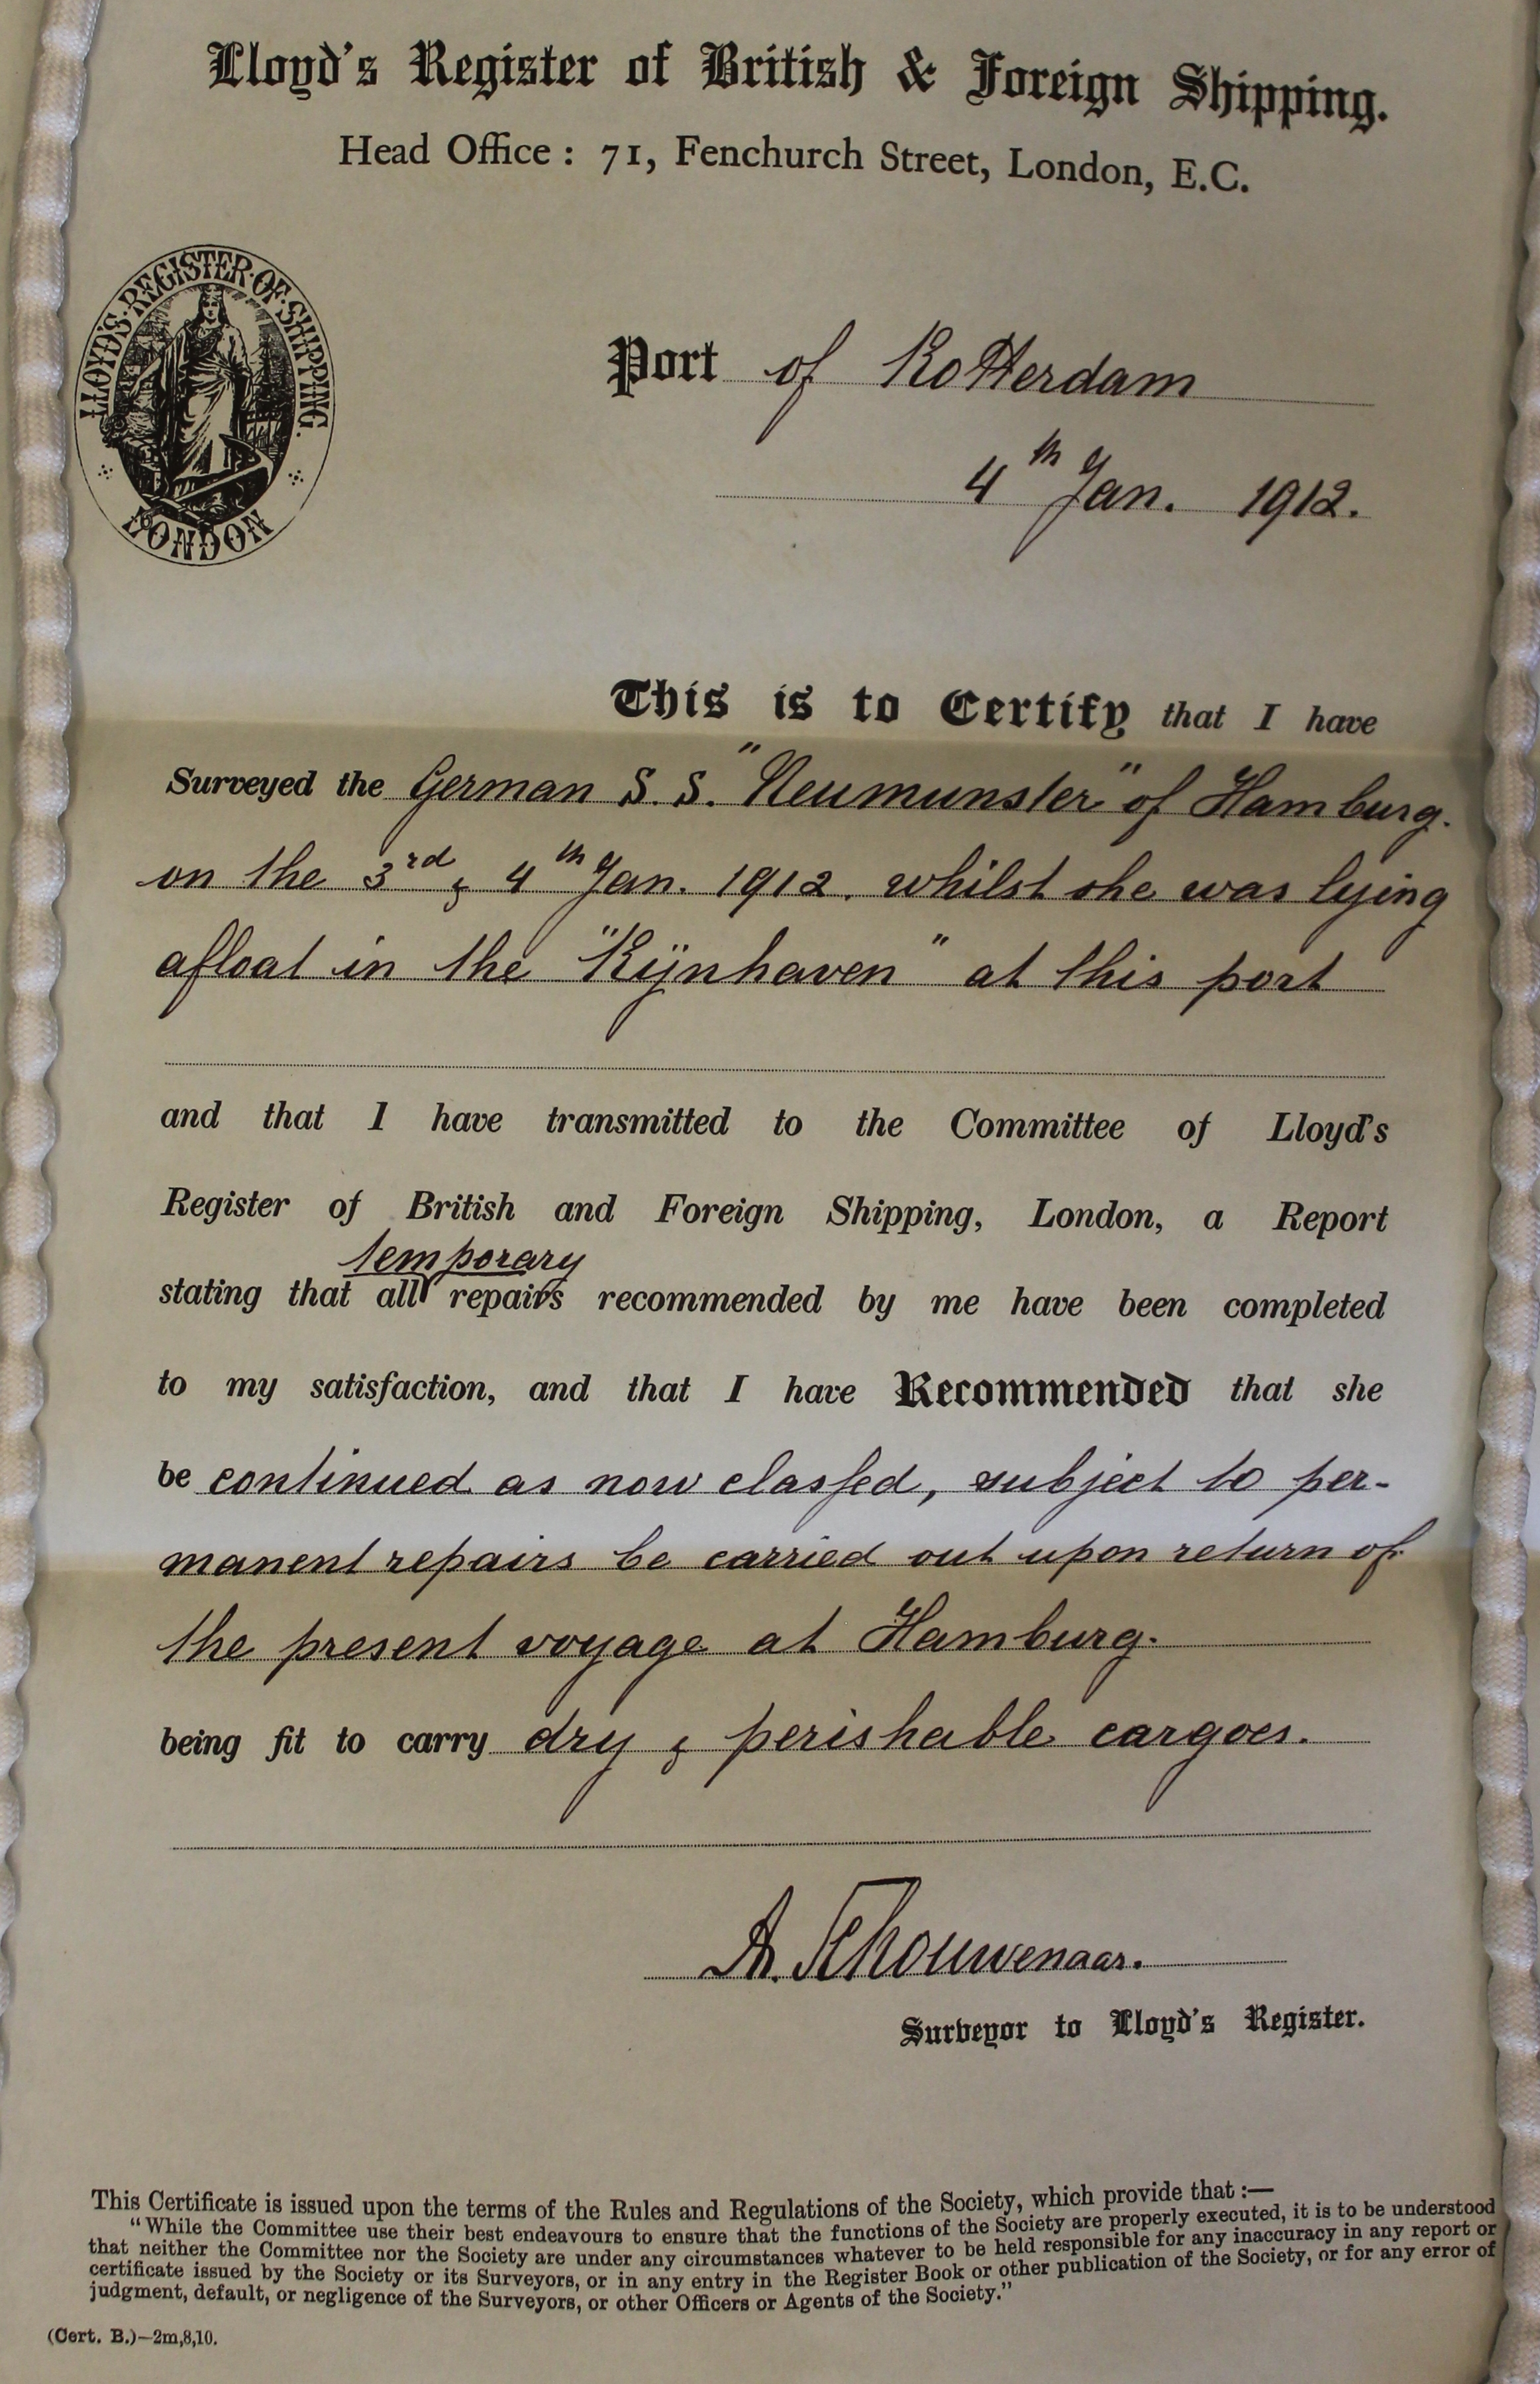 Lloyd's Register of British & Foreign Shipping.
Head Office : 71, Fenchurch Street, London, E.C.
LLOYDS·REGISTER·OF·SHIPPING.
LONDON
Port of Rotterdam
4th Jan. 1912.
This is to Certify that I have
Surveyed the German S.S. "Neumunster" of Hamburg.
on the 3rd & 4th Jan. 1912. whilst she was lying
afloat in the "Rijnhaven" at this port
and that I have transmitted to the Committee of Lloyd's
Register of British and Foreign Shipping, London, a Report
temporary
stating that all repairs recommended by me have been completed
to my satisfaction, and that I have Recommended that she
be continued as now classed, subject to per-
manent repairs be carried out upon return of
the present voyage at Hamburg.
being fit to carry dry & perishable cargoes.
A. Schouwenaar.
Surveyor to Lloyd's Register.
This Certificate is issued upon the terms of the Rules and Regulations of the Society, which provide that :—
"While the Committee use their best endeavours to ensure that the functions of the Society are properly executed, it is to be understood
that neither the Committee nor the Society are under any circumstances whatever to be held responsible for any inaccuracy in any report or
certificate issued by the Society or its Surveyors, or in any entry in the Register Book or other publication of the Society, or for any error of
judgment, default, or negligence of the Surveyors, or other Officers or Agents of the Society."
(Cert. B.)—2m,8,10.